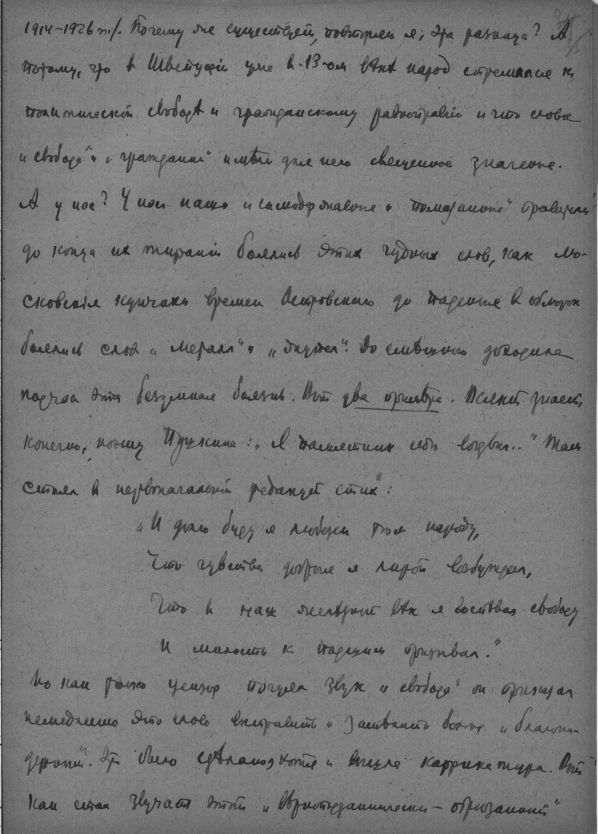 1914–1926 гг. Почему же существует, повторяю я, эта разница? А
потому, что в Швейцарии уже в 13-ом вѣкѣ народ стремился к
политической свободѣ и гражданскому равноправию и что слова
„свобода“ и „гражданин“ имѣли для него священное значенье.
А у нас? У нас наши „самодержавные“ и „помазанные“ правители
до конца их тираний боялись этих чудных слов, как мо-
сковския купчихи времен Островскаго до паденья в обморок
боялись слов „металл“ и „жупел“. До смѣшного доходила
подчас эта безумная боязнь. Вот два примѣра. Всякий знает,
конечно, поэму Пушкина: „Я памятник себѣ воздвиг..“ Там
стоял в первоначальной редакции стих:
„И долго буду я любезен тѣм народу,
Что чувства добрыя я лирой возбуждал,
Что в наш жестокий вѣк я возславил свободу
И милость к падшим призывал.“
Но как только цензор почуял звук „свобода“ он приказал
немедленно это слово вытравить и
Это было сдѣлано и вышла каррикатура. Вот
как стал звучать этот